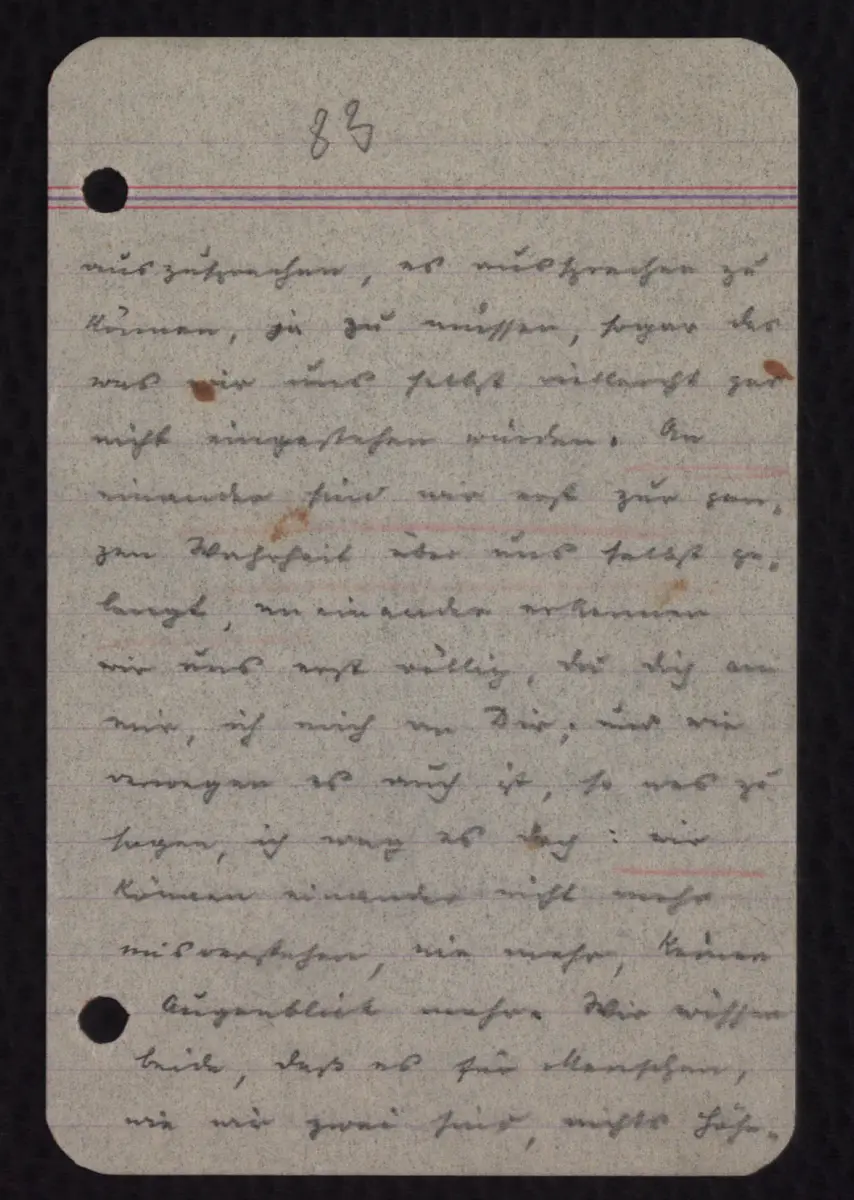 83
auszusprechen, es aussprechen zu
können, ja zu müssen, sogar das
was wir uns selbst vielleicht gar
nicht eingestehen würden. An
einander sind wir erst zur gan-
zen Wahrheit über uns selbst ge-
langt, an einander erkennen
wir uns erst völlig, du dich an
mir, ich mich an Dir, und wie
verwegen es auch ist, so was zu
sagen, ich wag es doch: wir
können einander nicht mehr
misverstehen, nie mehr, keinen
Augenblick mehr. Wir wissen
beide, daß es für Menschen,
wie wir zwei sind, nichts Höh-